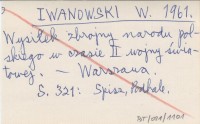 IWANOWSKI W. 1961.
Wysiłek zbrojny narodu pol-
skiego w czasie II wojny świa-
towej. — Warszawa.
S. 321: Spisz, Podhale.